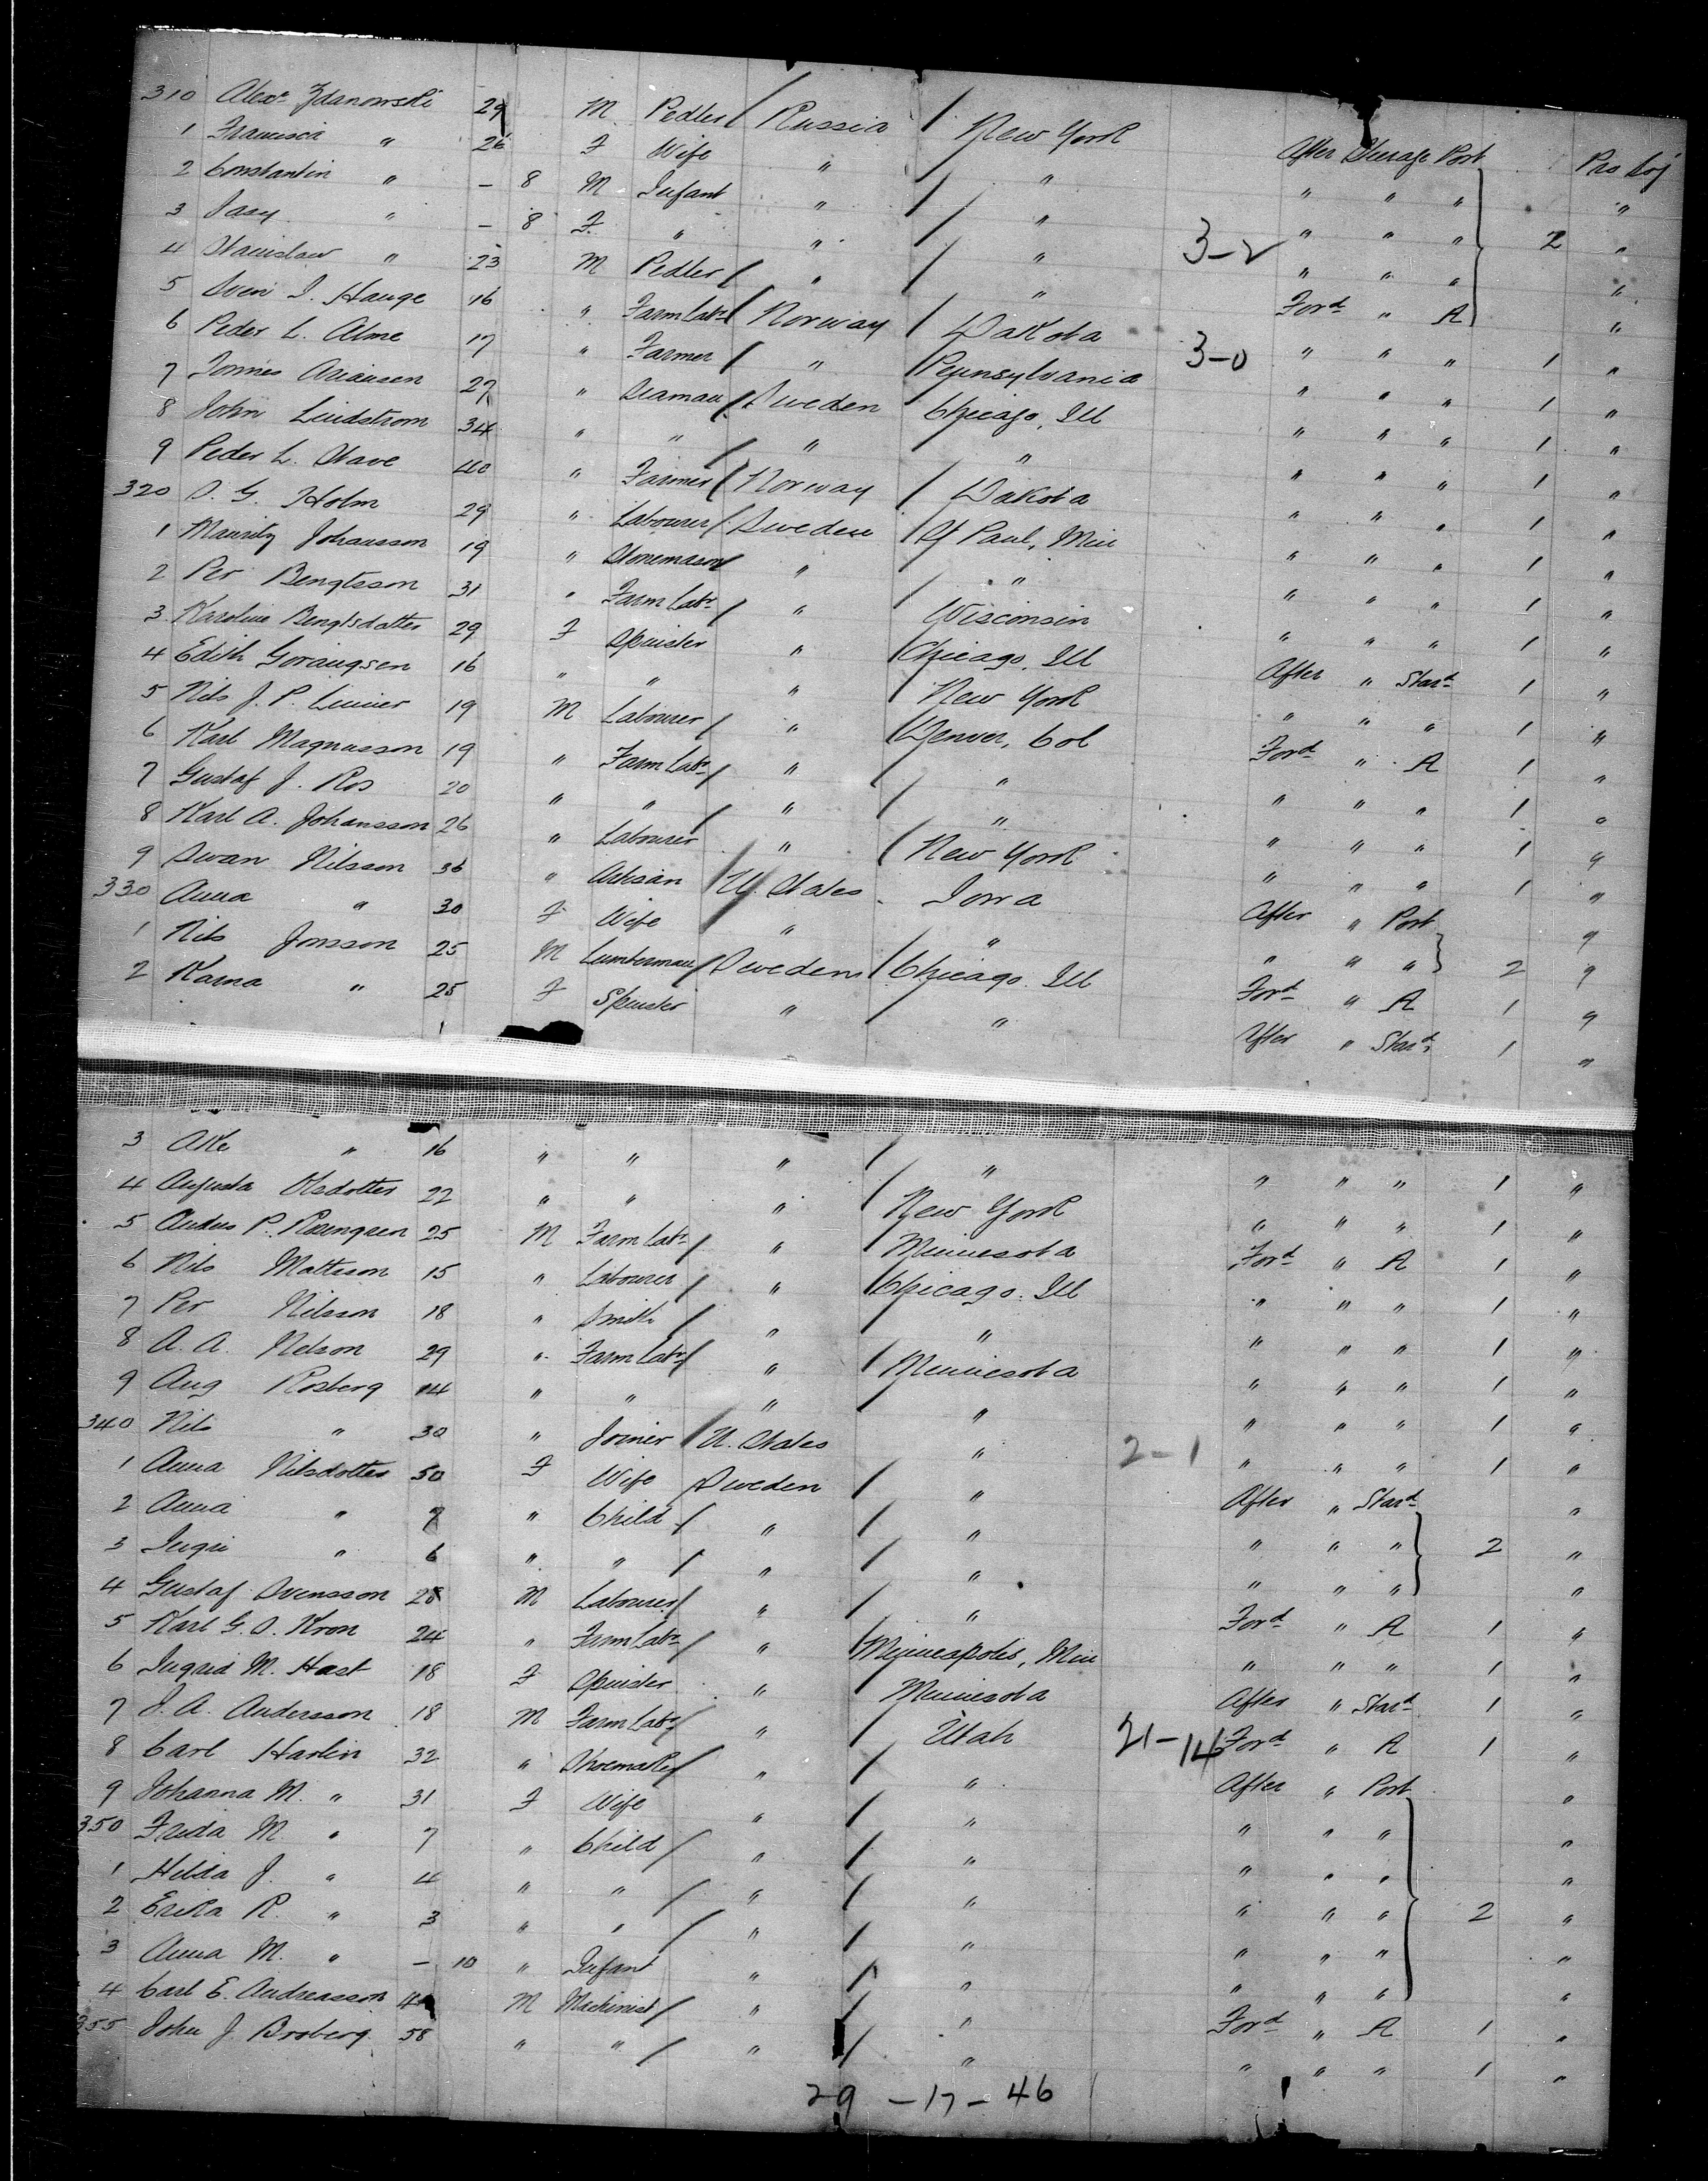 310 Alexr Zdanowski 29 M Pedler / Russia / New York After Steerage Port Pro Soj
1 Francisca " 26 F Wife " / " " " " "
2 Constantin " — 8 M Infant " / " " " " 2 "
3 " — 8 F " " / " 3-2 " " " "
4 Stanislaw " 23 M Pedler / " / " Ford " A "
5 Sven I. Hauge 16 " Farm Labr / Norway / Dakota 3-0 " " " 1 "
6 Peder L. Alme 17 " Farmer / " / Pennsylvania " " " 1 "
7 27 " Seaman / Sweden / Chicago, Ill " " " 1 "
8 John Lindstrom 34 " " / " " " " " 1 "
9 Peder L. Stave 40 " Farmer / Norway / Dakota " " " 1 "
320 S. G. Holm 29 " Labourer / Sweden / St Paul, Min " " " 1 "
1 Mauritz Johansson 19 " Stonemason / " / " " " " 1 "
2 Per Bengtsson 31 " Farm Labr / " / Wisconsin " " " 1 "
3 Karoline Bengtsdotter 29 F Spinster " / Chicago, Ill After " Stard 1 "
4 Edith 16 " " " / New York " " " 1 "
5 Nils J. P. 19 M Labourer / " / Denver, Col Ford " A 1 "
6 Karl Magnusson 19 " Farm Labr / " / " " " " 1 "
7 Gustaf J. Ros 20 " " / " / " " " " 1 "
8 Karl A. Johansson 26 " Labourer " / New York " " " 1 "
9 Swan Nilsson 36 " Artisan / U. States Iowa After " Port "
330 Anna " 30 F Wife " " " " " 2 "
1 Nils Jonsson 25 M Lumberman / Sweden / Chicago. Ill Ford " A 1 "
2 Karna " 25 F Spinster " / " After " Stard 1 "
3 Ake " 16 " " " / " " " " 1 "
4 Augusta Olsdotter 22 " " " / New York " " " 1 "
5 Andus P. Rosengren 25 M Farm Labr / " / Minnesota Ford " A 1 "
6 Nils Mattsson 15 " Labourer / " / Chicago. Ill " " " 1 "
7 Per Nilsson 18 " Smith / " / " " " " 1 "
8 A. A. Nelson 29 " Farm Labr / " / Minnesota " " " 1 "
9 Aug Rosberg 14 " " " / " " " " 1 "
340 Nils " 30 " Joiner / U. States " 2-1 " " " 1 "
1 Anna Nilsdotter 50 F Wife / Sweden / " After " Stard "
2 Anna " 7 " Child / " / " " " " 2 "
3 Ingri " 6 " " / " / " " " " "
4 Gustaf Svensson 28 M Labourer / " / " Ford " A 1 "
5 Karl G. S. Kron 24 " Farm Labr / " / Minneapolis, Min " " " 1 "
6 Ingrid M. Hast 18 F Spinster " Minnesota After " Stard 1 "
7 J. A. Andersson 18 M Farm Labr / " / Utah 21-14 Ford " A 1 "
8 Carl Harlin 32 " Shoemaker / " / " After " Port "
9 Johanna M. " 31 F Wife " / " " " " "
350 Frida M. " 7 " Child / " / " " " " "
1 Hilda J. " 4 " " / " / " " " " 2 "
2 Erika R. " 3 " " / " / " " " " "
3 Anna M. " — 10 " Infant " / " " " " "
4 Carl E. Andreasson M Machinist / " / " Ford " A 1 "
355 John J. Broberg 58 " " / " / " " " " 1 "
29 - 17 - 46